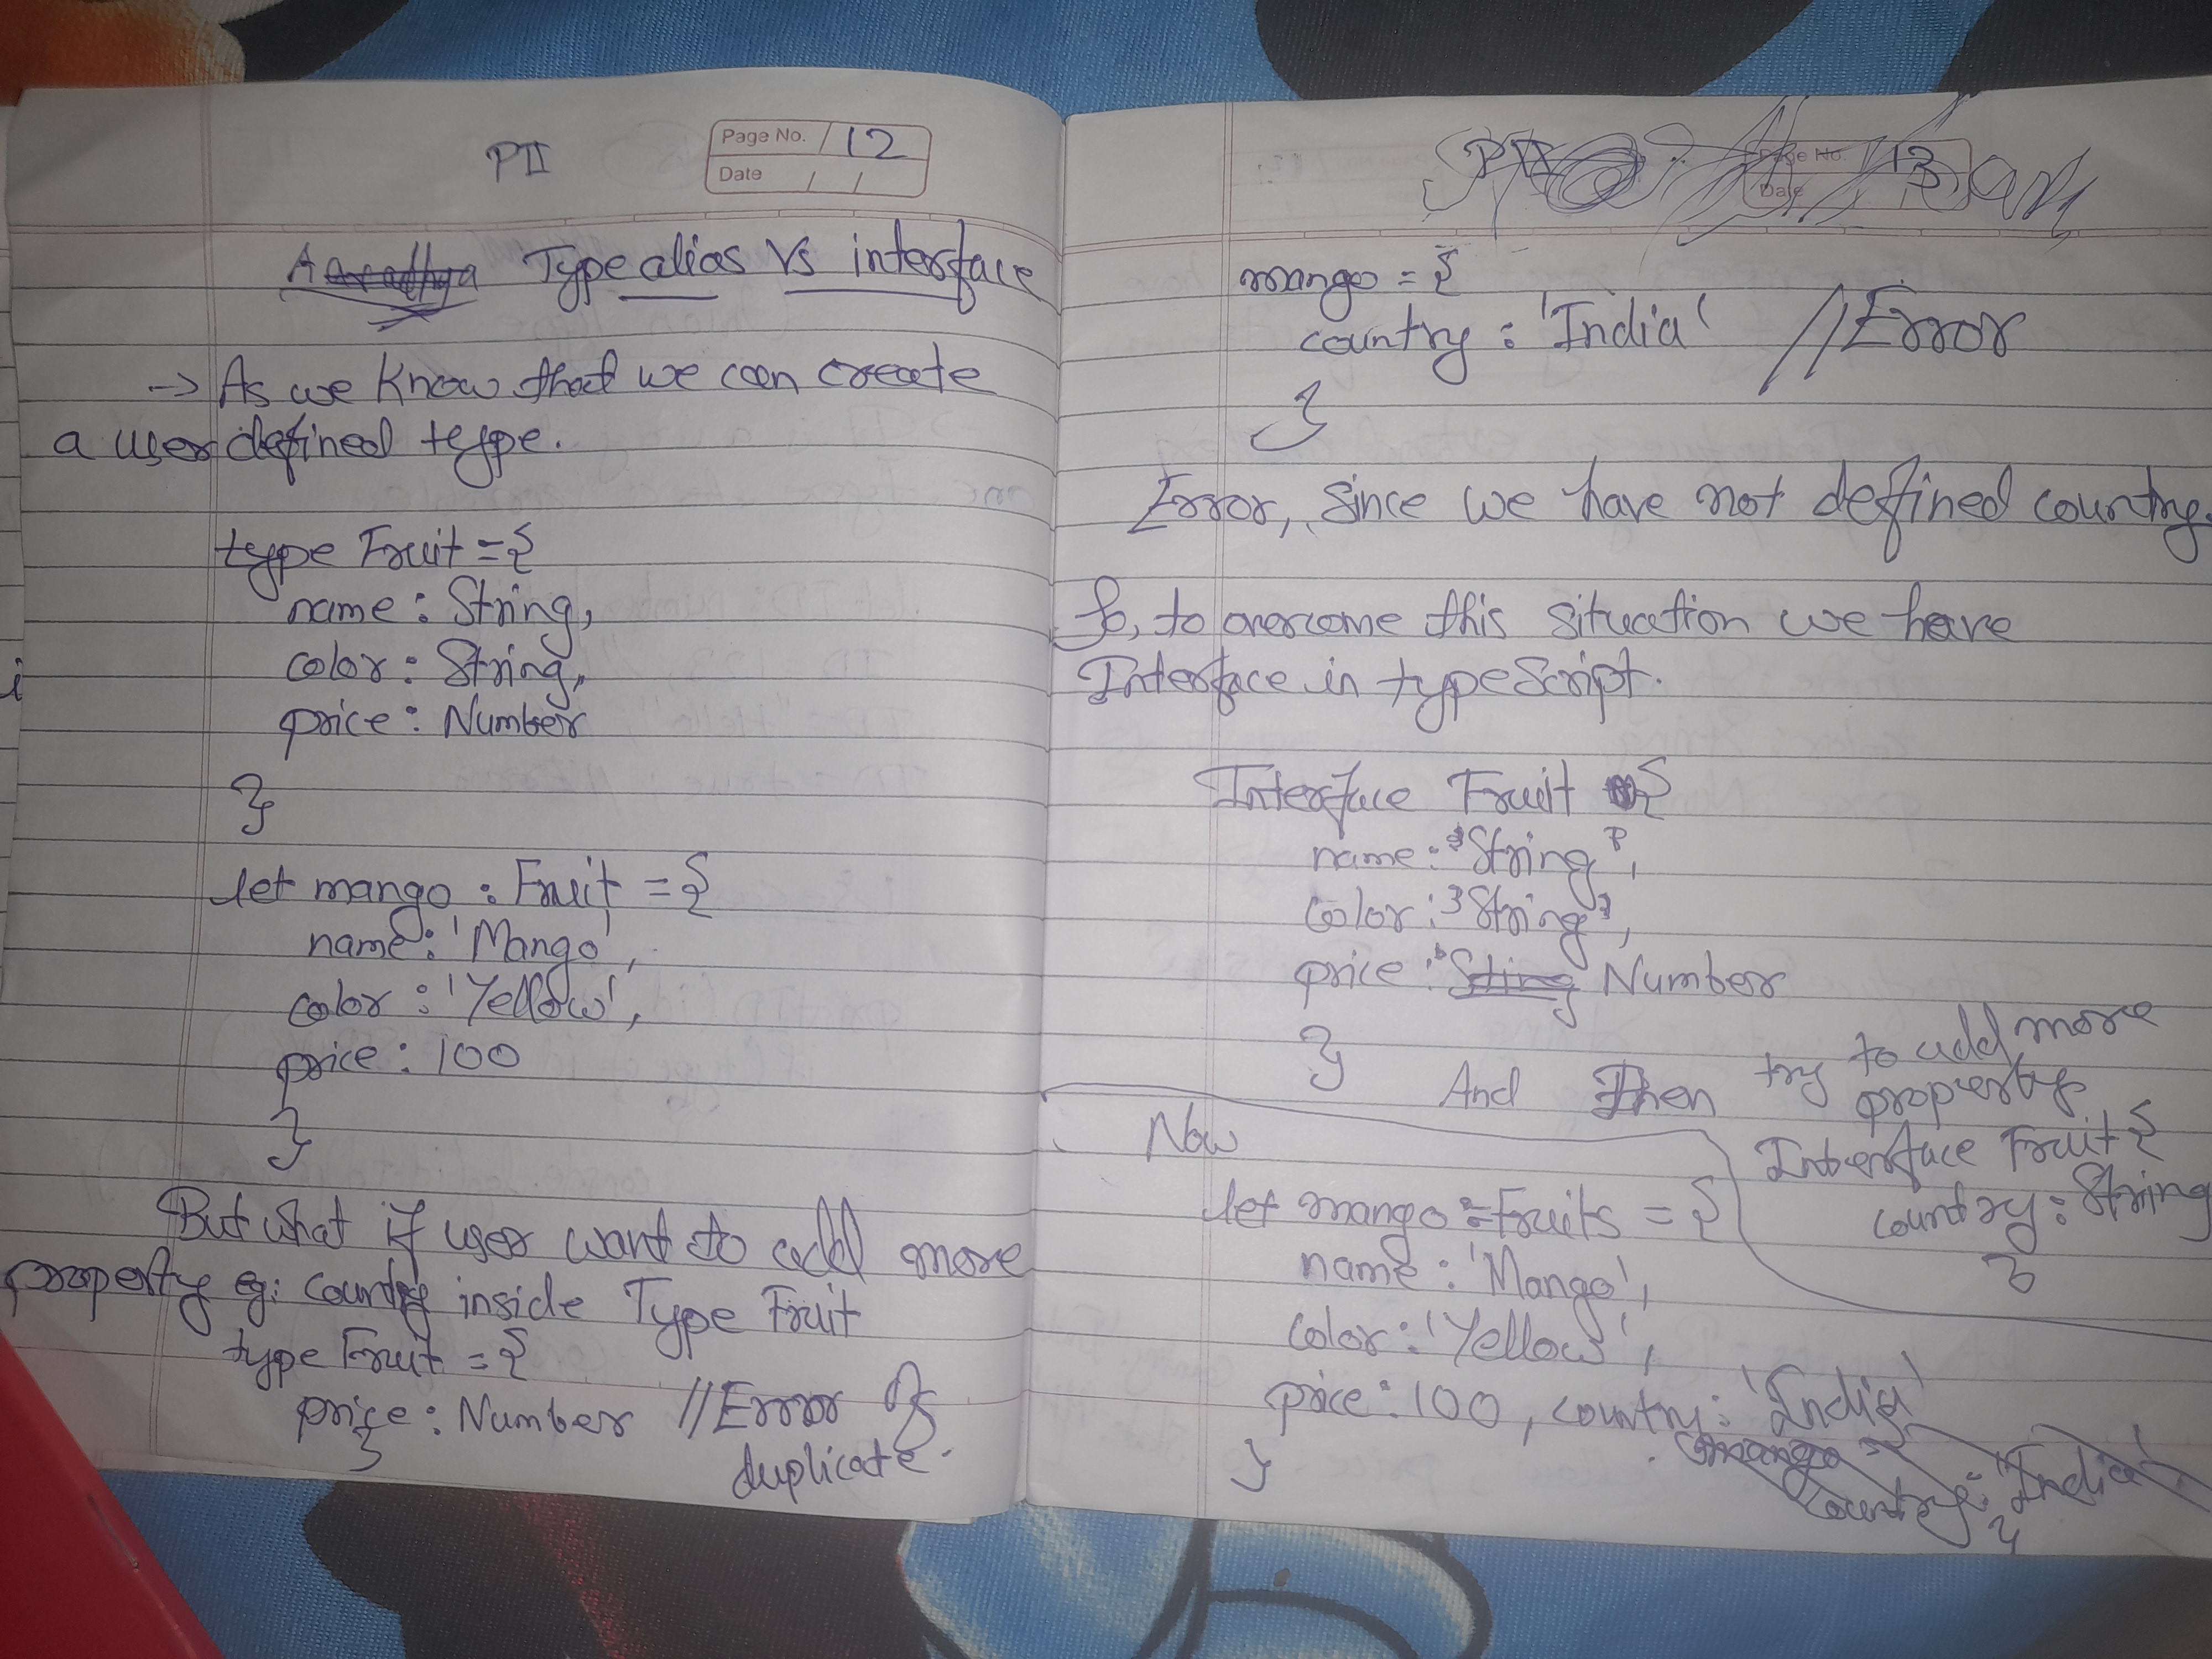 PII
Page No. 12
Date / /
Type alias Vs interface
-> As we know that we can create
a user defined type.
type Fruit = {
name : String,
color : String,
price : Number
}
let mango : Fruit = {
name : 'Mango',
color : 'Yellow',
price : 100
}
But what if user want to add more
property eg: country inside Type Fruit
type Fruit = {
price : Number //Error of
} duplicate.
Page No. 13
Date
mango = {
country : 'India' //Error
}
Error, Since we have not deffined country.
So, to overcome this situation we have
Interface in typeScript.
Interface Fruit {
name : String,
color : String,
price : Number
}
And Then try to add more
property
Interface Fruit {
country : String
}
Now
let mango : Fruits = {
name : 'Mango',
color : 'Yellow',
price : 100, country : 'India'
}
mango = {
country : 'India'
}